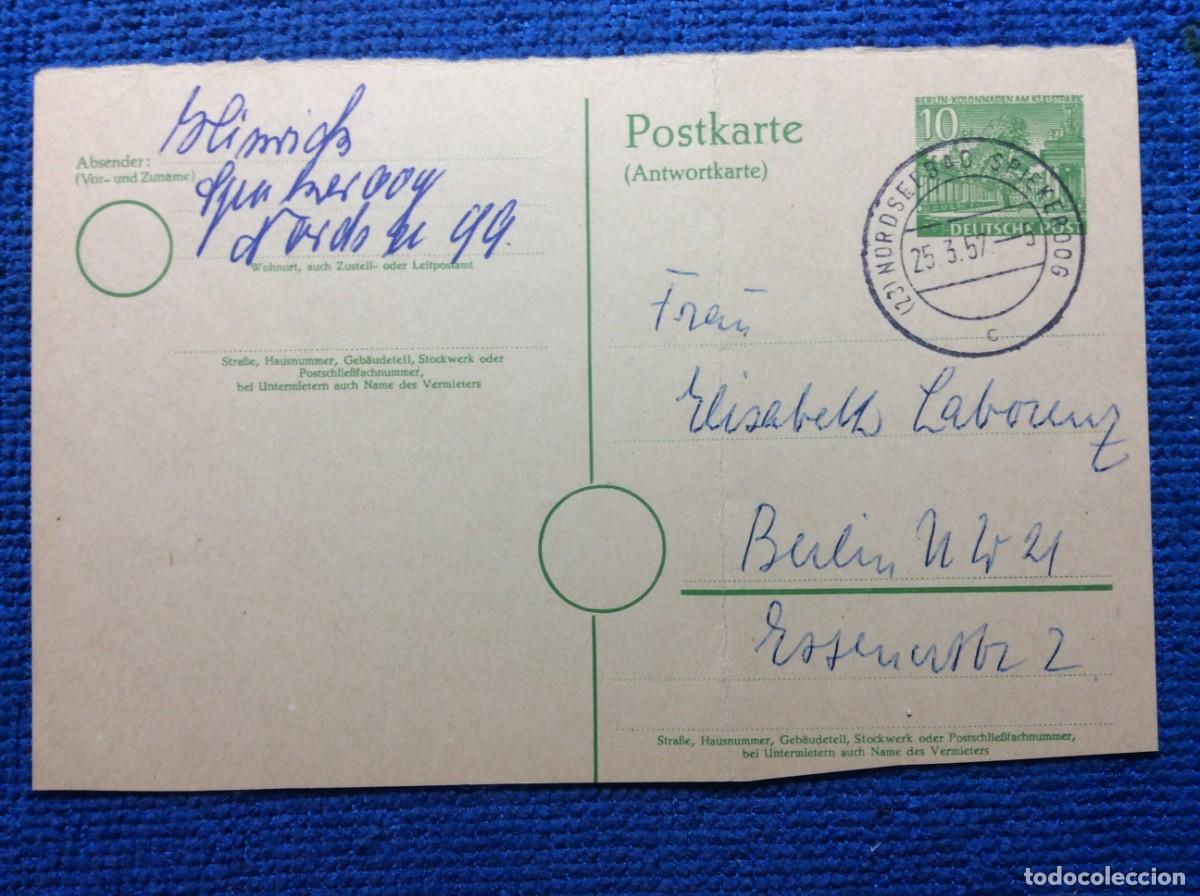 Hinrichs
Absender:
(Vor- und Zuname)
Spiekeroog
Nordsee 99.
Wohnort, auch Zustell- oder Leitpostamt
Straße, Hausnummer, Gebäudeteil, Stockwerk oder
Postschließfachnummer,
bei Untermietern auch Name des Vermieters
Postkarte
(Antwortkarte)
BERLIN-KOLONNADEN AM KLEISTPARK
10
DEUTSCHE POST
(23) NORDSEEBAD SPIEKEROOG
25.3.57.
c
Frau
Elisabeth Laborenz
Berlin NW 21
Essenerstr 2
Straße, Hausnummer, Gebäudeteil, Stockwerk oder Postschließfachnummer,
bei Untermietern auch Name des Vermieters
todocoleccion